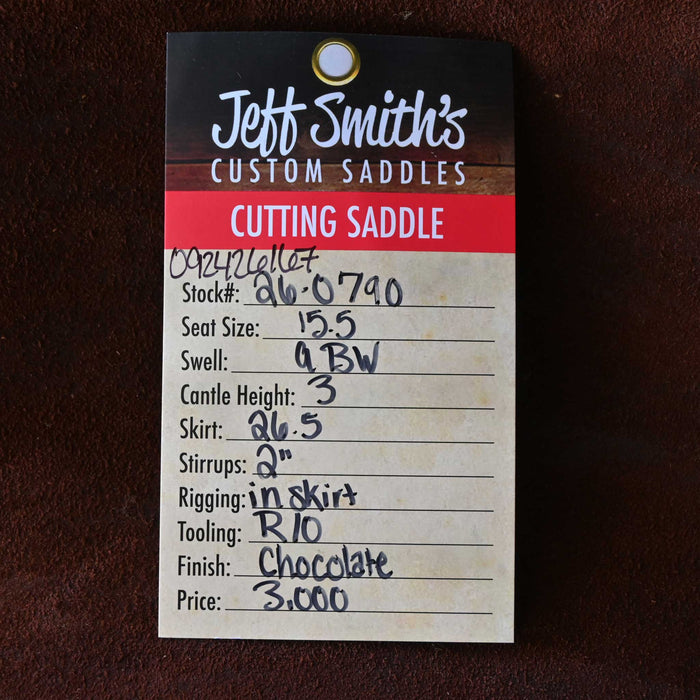 Jeff Smith's
CUSTOM SADDLES
CUTTING SADDLE
0924261667
Stock#: 26.0790
Seat Size: 15.5
Swell: 9 BW
Cantle Height: 3
Skirt: 26.5
Stirrups: 2"
Rigging: in skirt
Tooling: R10
Finish: Chocolate
Price: 3,000